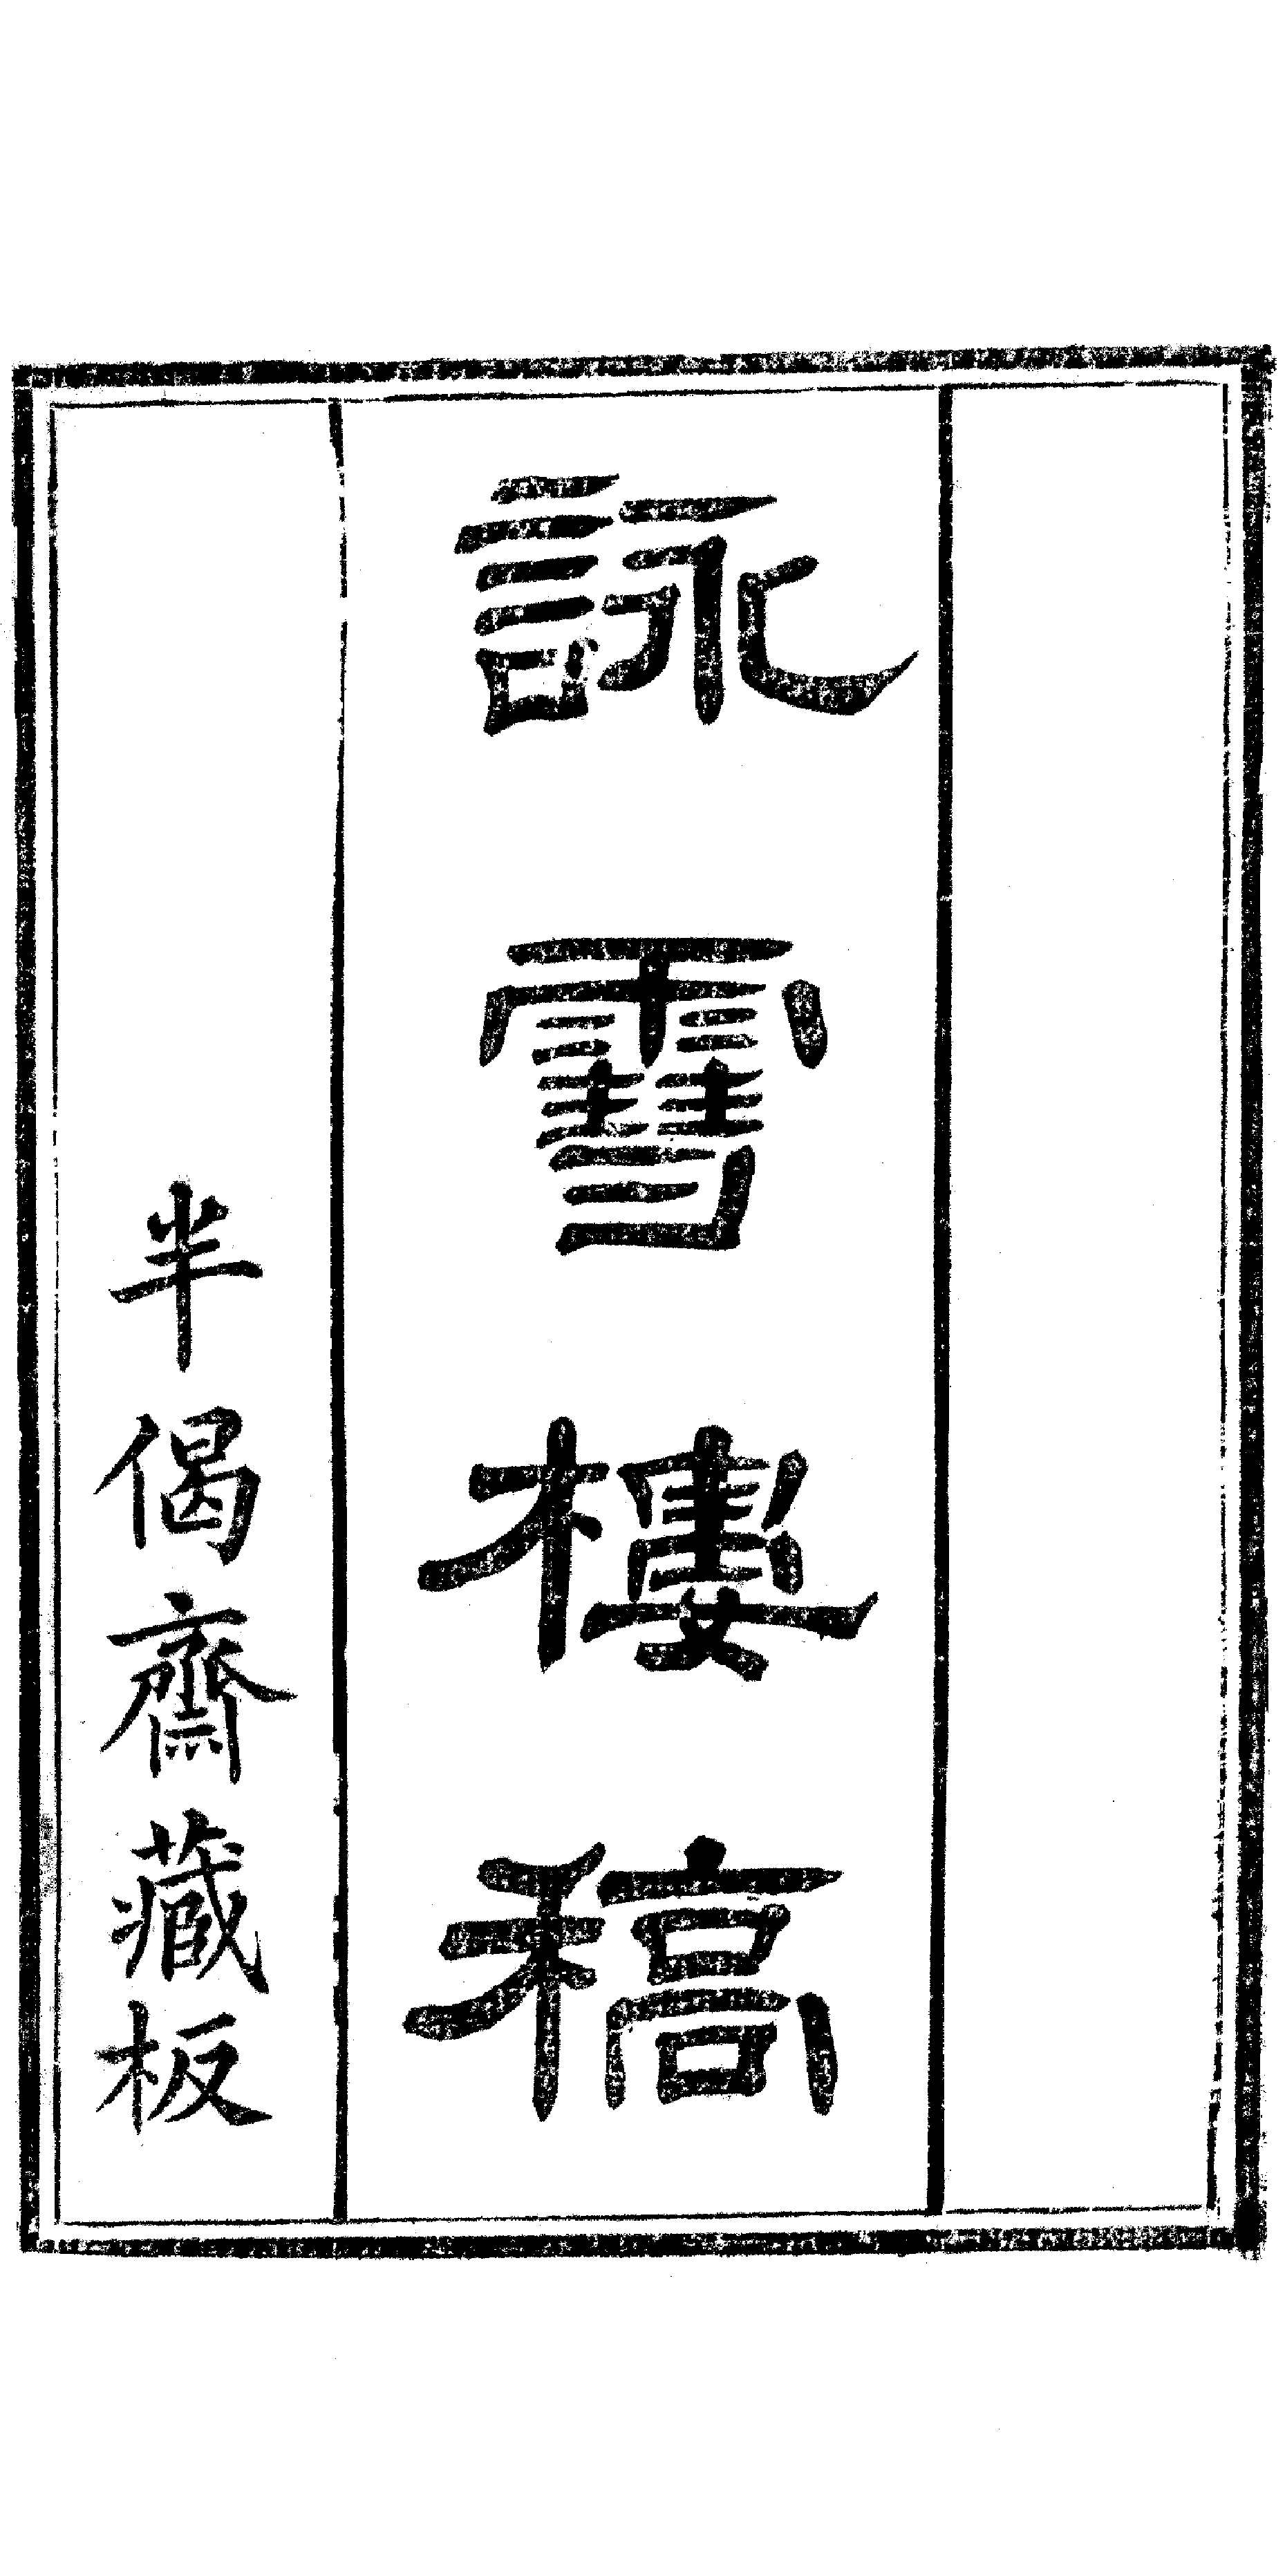 詠雪樓稿
半偈齋藏板